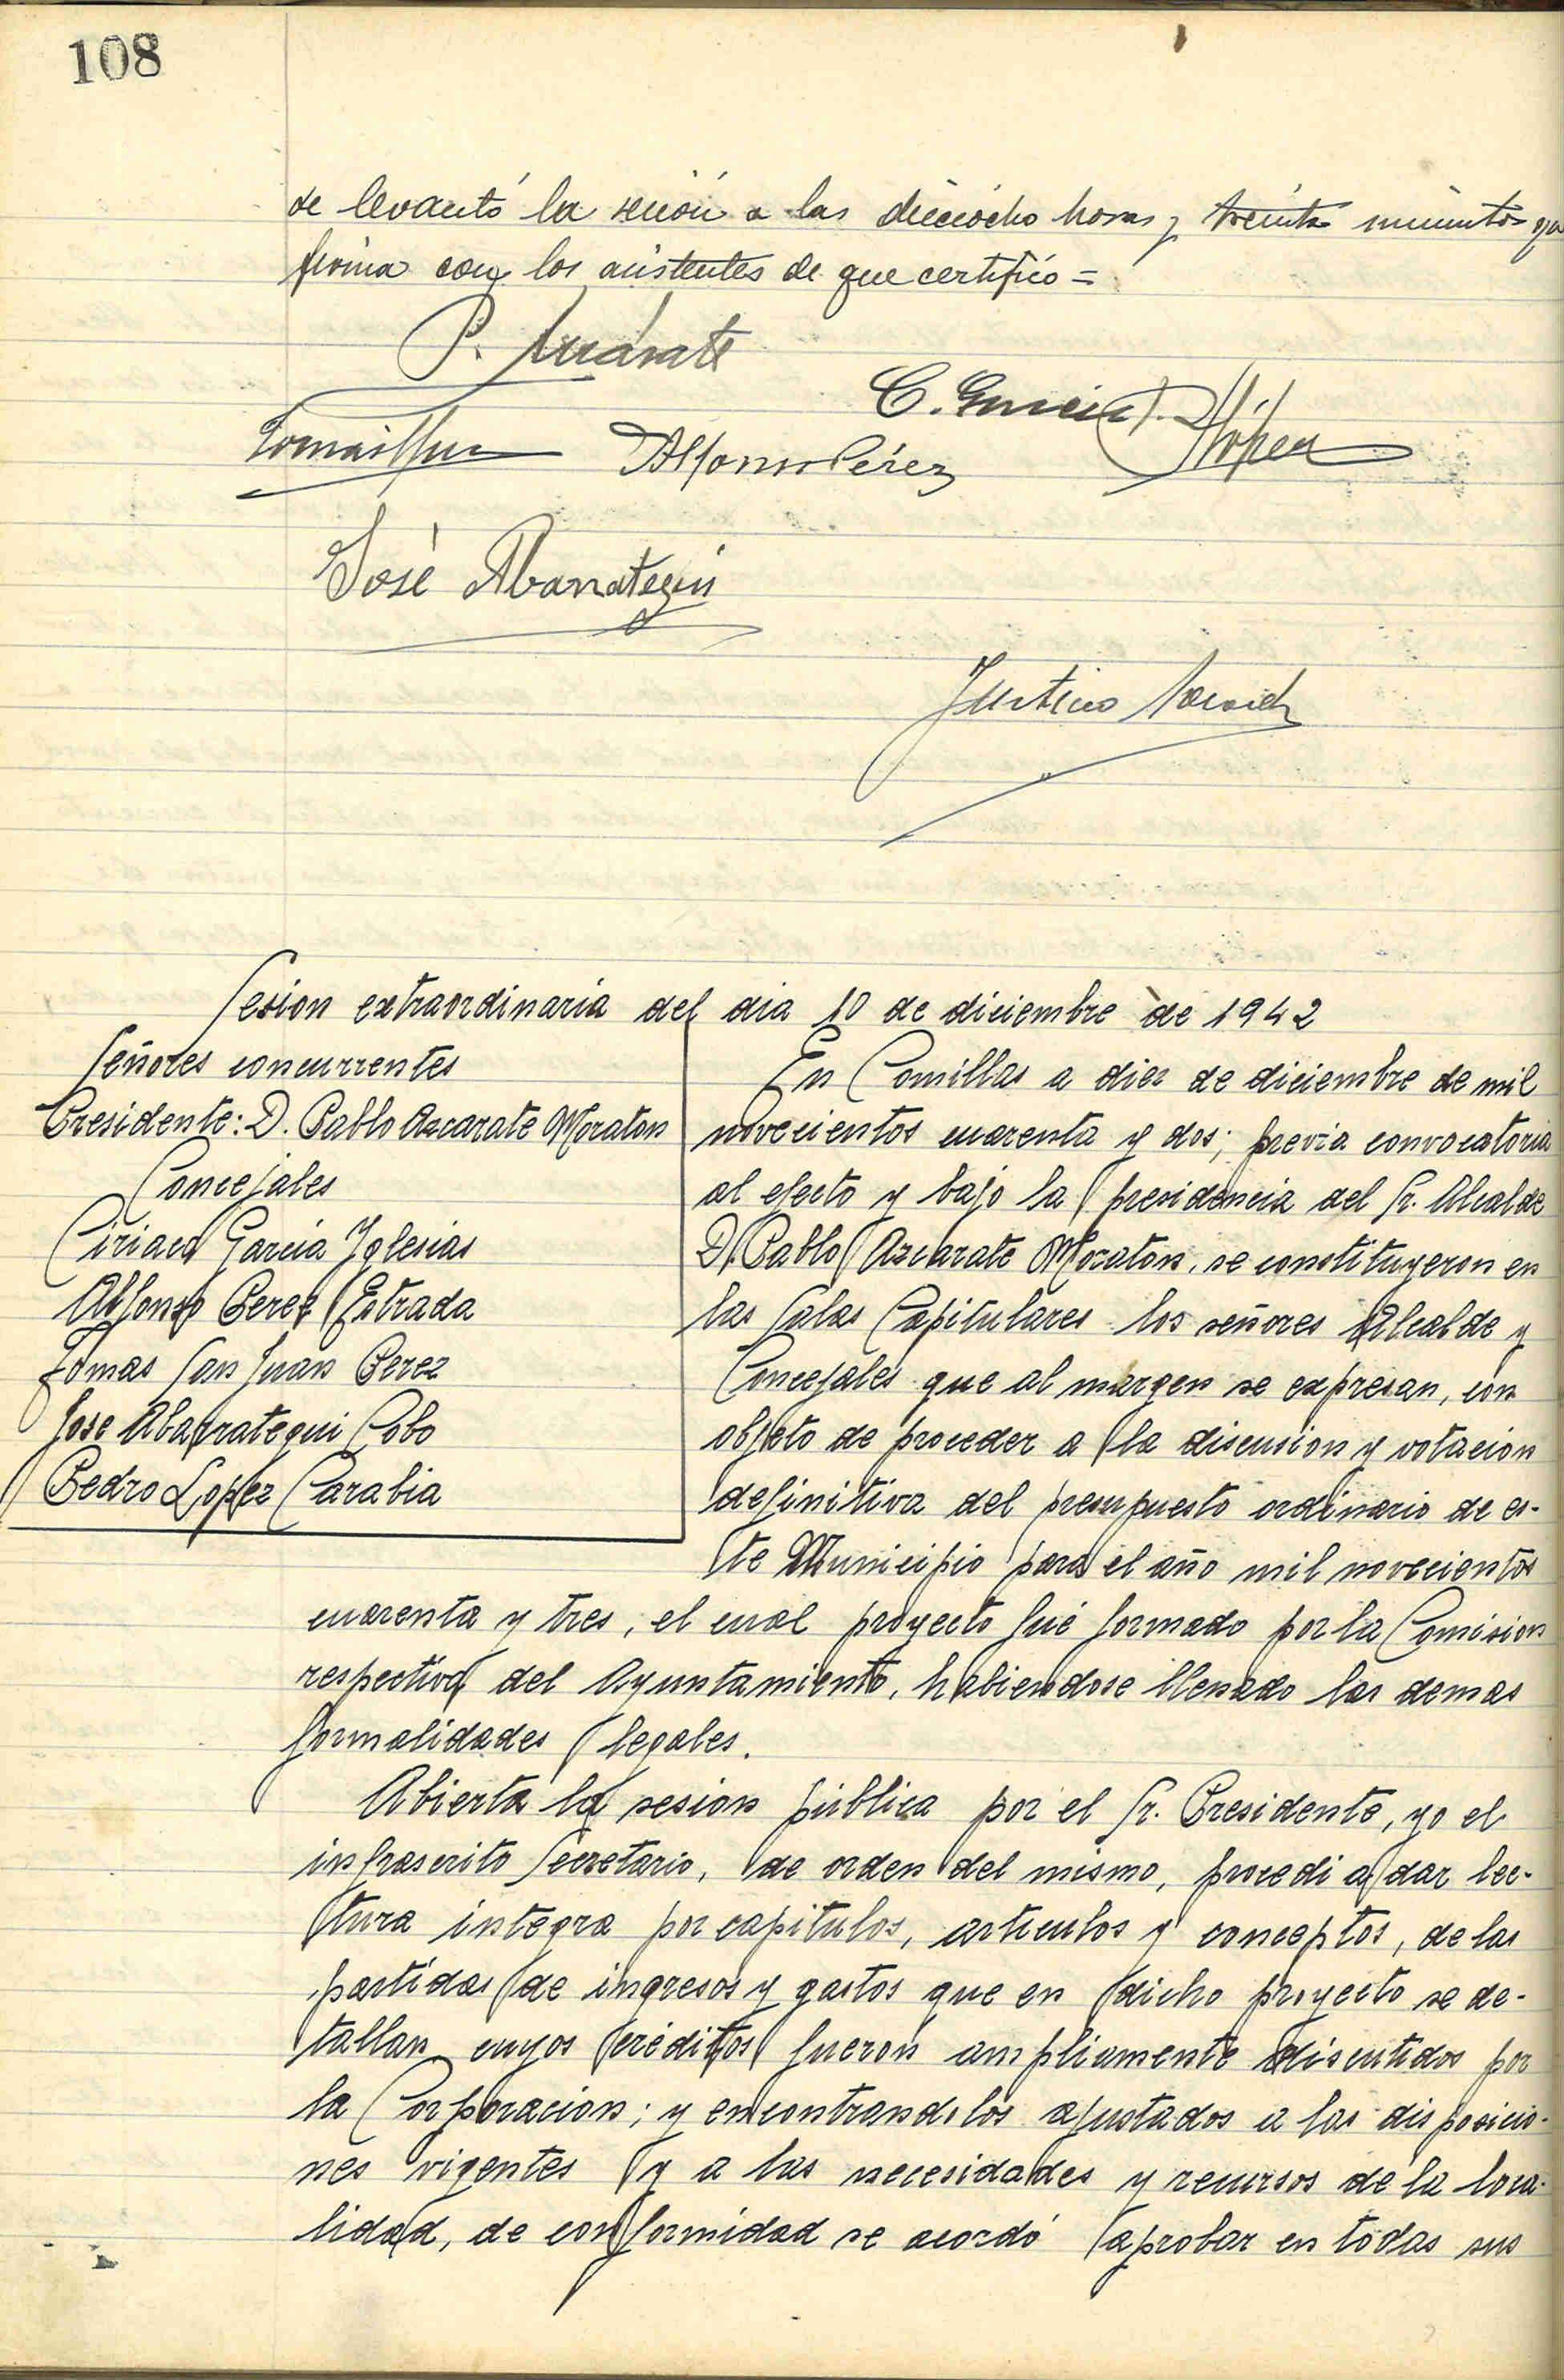 108
se levantó la sesión a las dieciocho horas y treinta minutos
firma con los asistentes de que certifico =
P. Azcárate
C. García
P. López
Alfonso Pérez
José Abarrategui
Justino
Sesion extraordinaria del dia 10 de diciembre de 1942
Señores concurrentes
Presidente: D. Pablo Azcarate Moraton
Concejales
Ciriaco Garcia Yglesias
Alfonso Perez Estrada
Tomas San Juan Perez
Jose Abarrategui Cobo
Pedro Lopez Carabia
En Comillas a diez de diciembre de mil
novecientos cuarenta y dos; previa convocatoria
al efecto y bajo la presidencia del Sr. Alcalde
D. Pablo Azcarate Moraton, se constituyeron en
las Salas Capitulares los señores Alcalde y
Concejales que al margen se expresan, con
objeto de proceder a la discusion y votacion
definitiva del presupuesto ordinario de es-
te Municipio para el año mil novecientos
cuarenta y tres, el cual proyecto fué formado por la Comision
respectiva del Ayuntamiento, habiendose llenado las demas
formalidades legales.
Abierta la sesion pública por el Sr. Presidente, yo el
infrascrito Secretario, de orden del mismo, procedi a dar lec-
tura integra por capitulos, articulos y conceptos, de las
partidas de ingresos y gastos que en dicho proyecto se de-
tallan cuyos créditos fueron ampliamente discutidos por
la Corporacion; y encontrandolos ajustados a las disposicio-
nes vigentes y a las necesidades y recursos de la loca-
lidad, de conformidad se acordó aprobar en todas sus